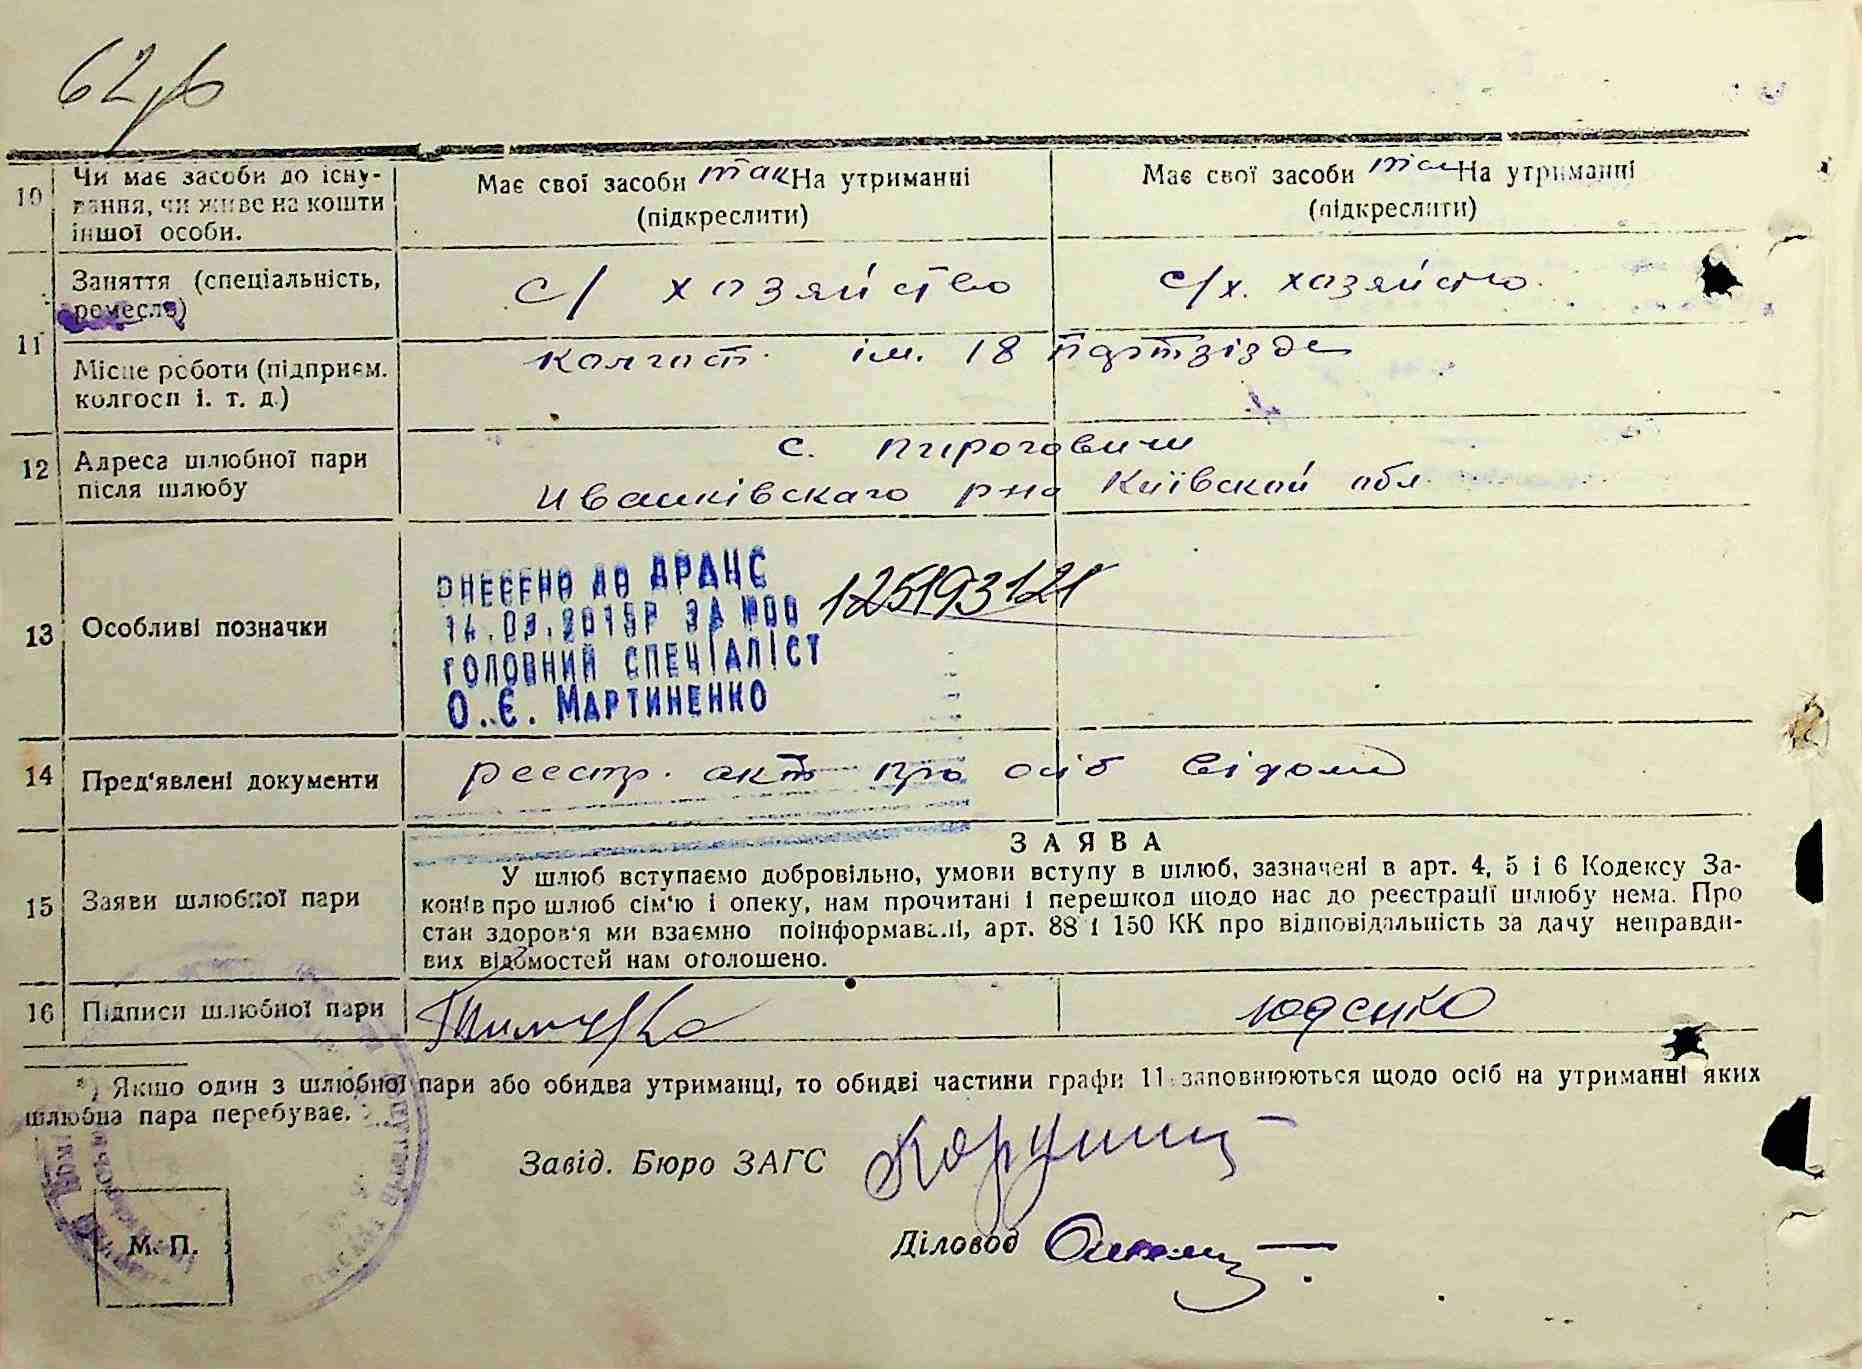 10 Чи має засоби до існу-
вання, чи живе на кошти
іншої особи.
Має свої засоби так На утриманні
(підкреслити)
Має свої засоби так На утриманні
(підкреслити)
11 Заняття (спеціальність,
ремесло)
с/ хозяйство
с/х. хозяйство
Місце роботи (підприєм.
колгосп і. т. д.)
колгосп ім. 18 партзізда
12 Адреса шлюбної пари
після шлюбу
с. Пироговичи
Иванківскаго р-на Київской обл
13 Особливі позначки
ВНЕСЕНО ДО ДРАЦС
ЗА №00 125193121
ГОЛОВНИЙ СПЕЦІАЛІСТ
О.Є. МАРТИНЕНКО
14 Пред'явлені документи
реестр. акт про осіб відомі
15 Заяви шлюбної пари
ЗАЯВА
У шлюб вступаємо добровільно, умови вступу в шлюб, зазначені в арт. 4, 5 і 6 Кодексу За-
конів про шлюб сім'ю і опеку, нам прочитані і перешкод щодо нас до реєстрації шлюбу нема. Про
стан здоров'я ми взаємно поінформавалі, арт. 88 і 150 КК про відповідальність за дачу неправди-
вих відомостей нам оголошено.
16 Підписи шлюбної пари
Юденко
*) Якшо один з шлюбної пари або обидва утриманці, то обидві частини графи 11 заповнюються щодо осіб на утриманні яких
шлюбна пара перебуває.
Завід. Бюро ЗАГС
Діловод
М. П.